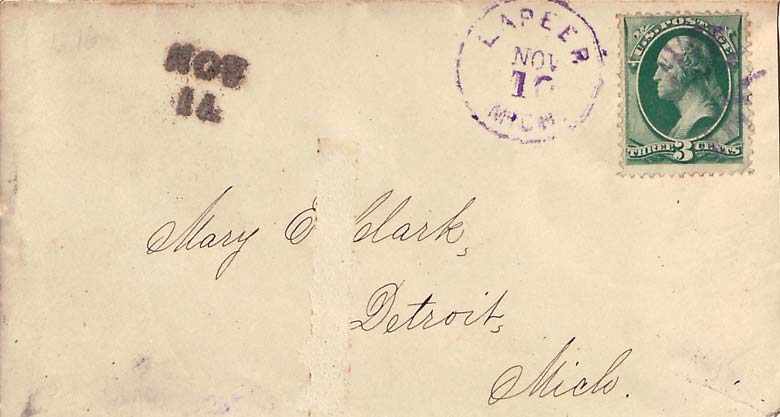 NOV
14
LAPEER
NOV
10
MICH.
U.S. POSTAGE
THREE 3 CENTS
Mary E Clark,
Detroit,
Mich.